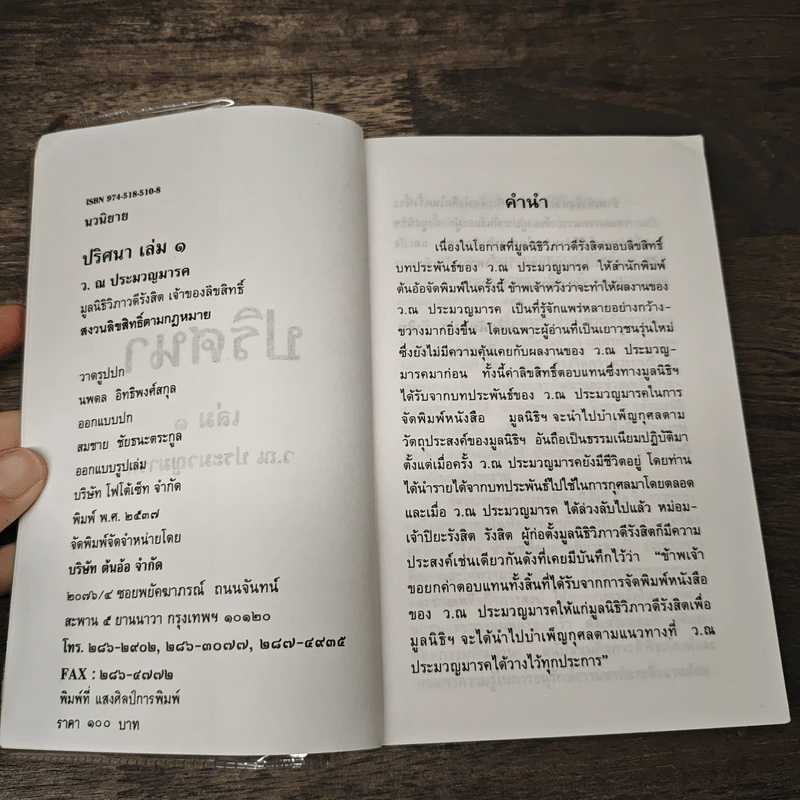 ISBN 974-518-510-8
นวนิยาย
ปริศนา เล่ม ๑
ว. ณ ประมวญมารค
มูลนิธิวิภาวดีรังสิต เจ้าของลิขสิทธิ์
สงวนลิขสิทธิ์ตามกฎหมาย
วาดรูปปก
นพดล อิทธิพงศ์สกุล
ออกแบบปก
สมชาย ชัยธนะตระกูล
ออกแบบรูปเล่ม
บริษัท โฟโต้เซ็ท จำกัด
พิมพ์ พ.ศ. ๒๕๓๗
จัดพิมพ์จัดจำหน่ายโดย
บริษัท ต้นอ้อ จำกัด
๒๐๗๖/๔ ซอยพยัคฆาภรณ์ ถนนจันทน์
สะพาน ๕ ยานนาวา กรุงเทพฯ ๑๐๑๒๐
โทร. ๒๘๖-๒๙๐๒, ๒๘๖-๓๐๗๗, ๒๘๗-๔๙๓๕
FAX : ๒๘๖-๔๗๗๒
พิมพ์ที่ แสงศิลป์การพิมพ์
ราคา ๑๐๐ บาท
คำนำ
เนื่องในโอกาสที่มูลนิธิวิภาวดีรังสิตมอบลิขสิทธิ์
บทประพันธ์ของ ว.ณ ประมวญมารค ให้สำนักพิมพ์
ต้นอ้อจัดพิมพ์ในครั้งนี้ ข้าพเจ้าหวังว่าจะทำให้ผลงานของ
ว.ณ ประมวญมารค เป็นที่รู้จักแพร่หลายอย่างกว้าง-
ขวางมากยิ่งขึ้น โดยเฉพาะผู้อ่านที่เป็นเยาวชนรุ่นใหม่
ซึ่งยังไม่มีความคุ้นเคยกับผลงานของ ว.ณ ประมวญ-
มารคมาก่อน ทั้งนี้ค่าลิขสิทธิ์ตอบแทนซึ่งทางมูลนิธิฯ
ได้รับจากบทประพันธ์ของ ว.ณ ประมวญมารคในการ
จัดพิมพ์หนังสือ มูลนิธิฯ จะนำไปบำเพ็ญกุศลตาม
วัตถุประสงค์ของมูลนิธิฯ อันถือเป็นธรรมเนียมปฏิบัติมา
ตั้งแต่เมื่อครั้ง ว.ณ ประมวญมารคยังมีชีวิตอยู่ โดยท่าน
ได้นำรายได้จากบทประพันธ์ไปใช้ในการกุศลมาโดยตลอด
และเมื่อ ว.ณ ประมวญมารค ได้ล่วงลับไปแล้ว หม่อม-
เจ้าปิยะรังสิต รังสิต ผู้ก่อตั้งมูลนิธิวิภาวดีรังสิตก็มีความ
ประสงค์เช่นเดียวกันดังที่เคยมีบันทึกไว้ว่า “ข้าพเจ้า
ขอยกค่าตอบแทนทั้งสิ้นที่ได้รับจากการจัดพิมพ์หนังสือ
ของ ว.ณ ประมวญมารคให้แก่มูลนิธิวิภาวดีรังสิตเพื่อ
มูลนิธิฯ จะได้นำไปบำเพ็ญกุศลตามแนวทางที่ ว.ณ
ประมวญมารคได้วางไว้ทุกประการ”